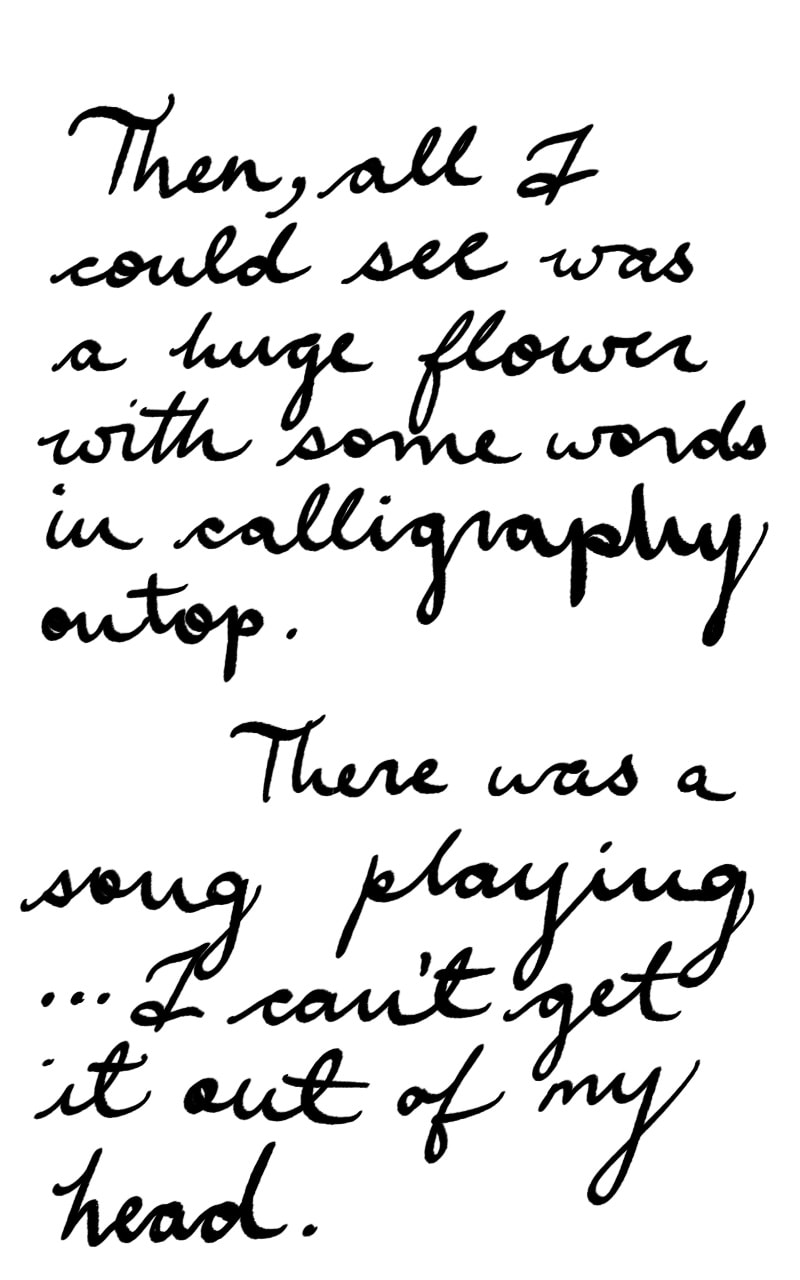 Then, all I
could see was
a huge flower
with some words
in calligraphy
on top.
There was a
song playing
...I can't get
it out of my
head.